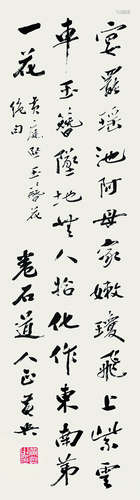 宴罷瑤池阿母家嫩瓊飛上紫雲
車玉簪墜地無人拾化作東南第
一花
黃庭堅玉簪花
絕句
石道人正 黃興